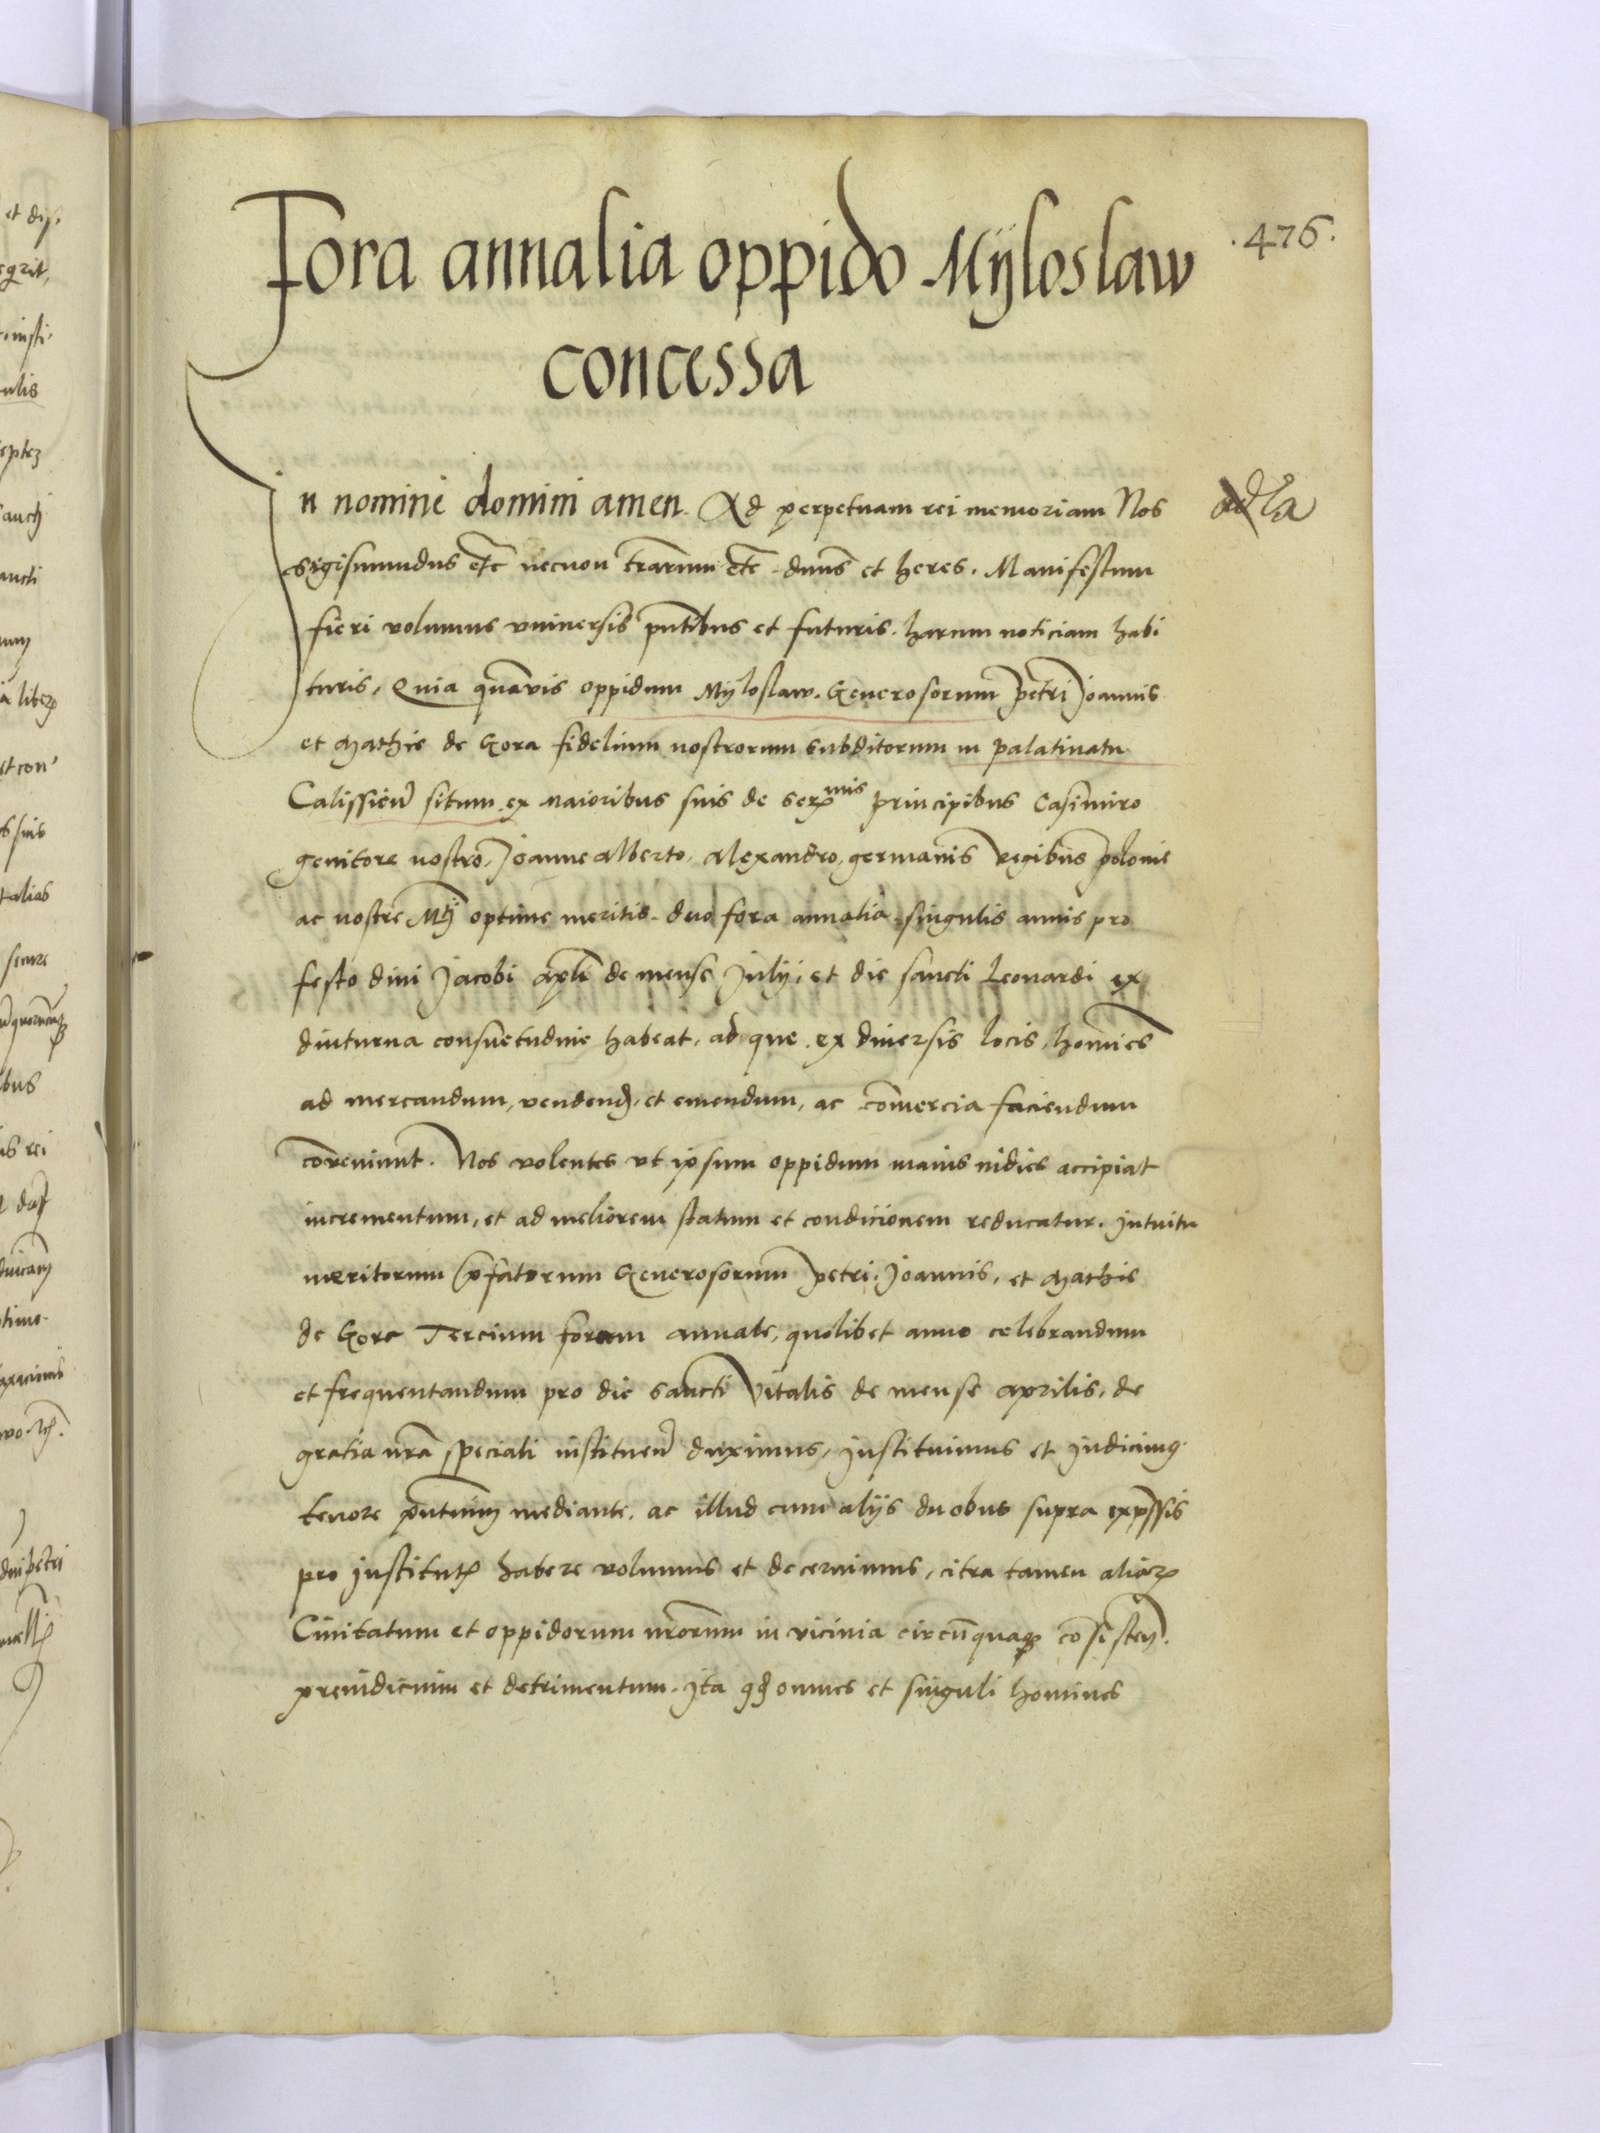 Fora annalia oppido Mÿloslaw
.476.
concessa
In nomine domini amen. Ad perpetuam rei memoriam Nos
Sigismundus etc necnon trarum etc dnus et heres. Manifestum
fieri volumus vniuersis pntibus et futuris. harum noticiam habi
turis, Quia quãvis oppidum Mÿloslaw. Generosorum Petri Joannis
et Mathie de Gora fidelium nostrorum subditorum in palatinatu
Calissien situm ex maioribus suis de Serᵐⁱˢ principibus Casimiro
genitore nostro, Joanne Alberto, Alexandro, germanis regibus polonie
ac nostre Mti optime meritis. duo fora annalia singulis annis pro
festo diui Jacobi apli de mense Julij, et die sancti Leonardi ex
diuturna consuetudine habeat, ad que ex diuersis locis homies
ad mercandum, vendend, et emendum, ac comercia faciendum
coueniunt. Nos volentes vt ipsum oppidum maius indies accipiat
incrementum, et ad meliorem statum et condicionem reducatur. Intuitu
meritorum pfatorum Generosorum Petri, Joannis, et Mathie
de Gore Tercium forum annale, quolibet anno celebrandum
et frequentandum pro die Sancti Vitalis de mense Aprilis, de
gratia nra speciali instituen duximus, Instituimus et Indicimus
tenore pntium mediante, ac illud cum alijs duobus supra expssis
pro Institut habere volumus et decernimus, citra tamen aliar
Ciuitatum et oppidorum nrorum in vicinia circuquaq cosisten.
preiudicium et detrimentum. Ita qd omnes et singuli homines